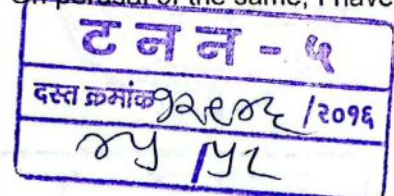 On perusal of the same, I have
ट न न - ५
दस्त क्रमांक १२९४६ /२०१६
४५ / ५८